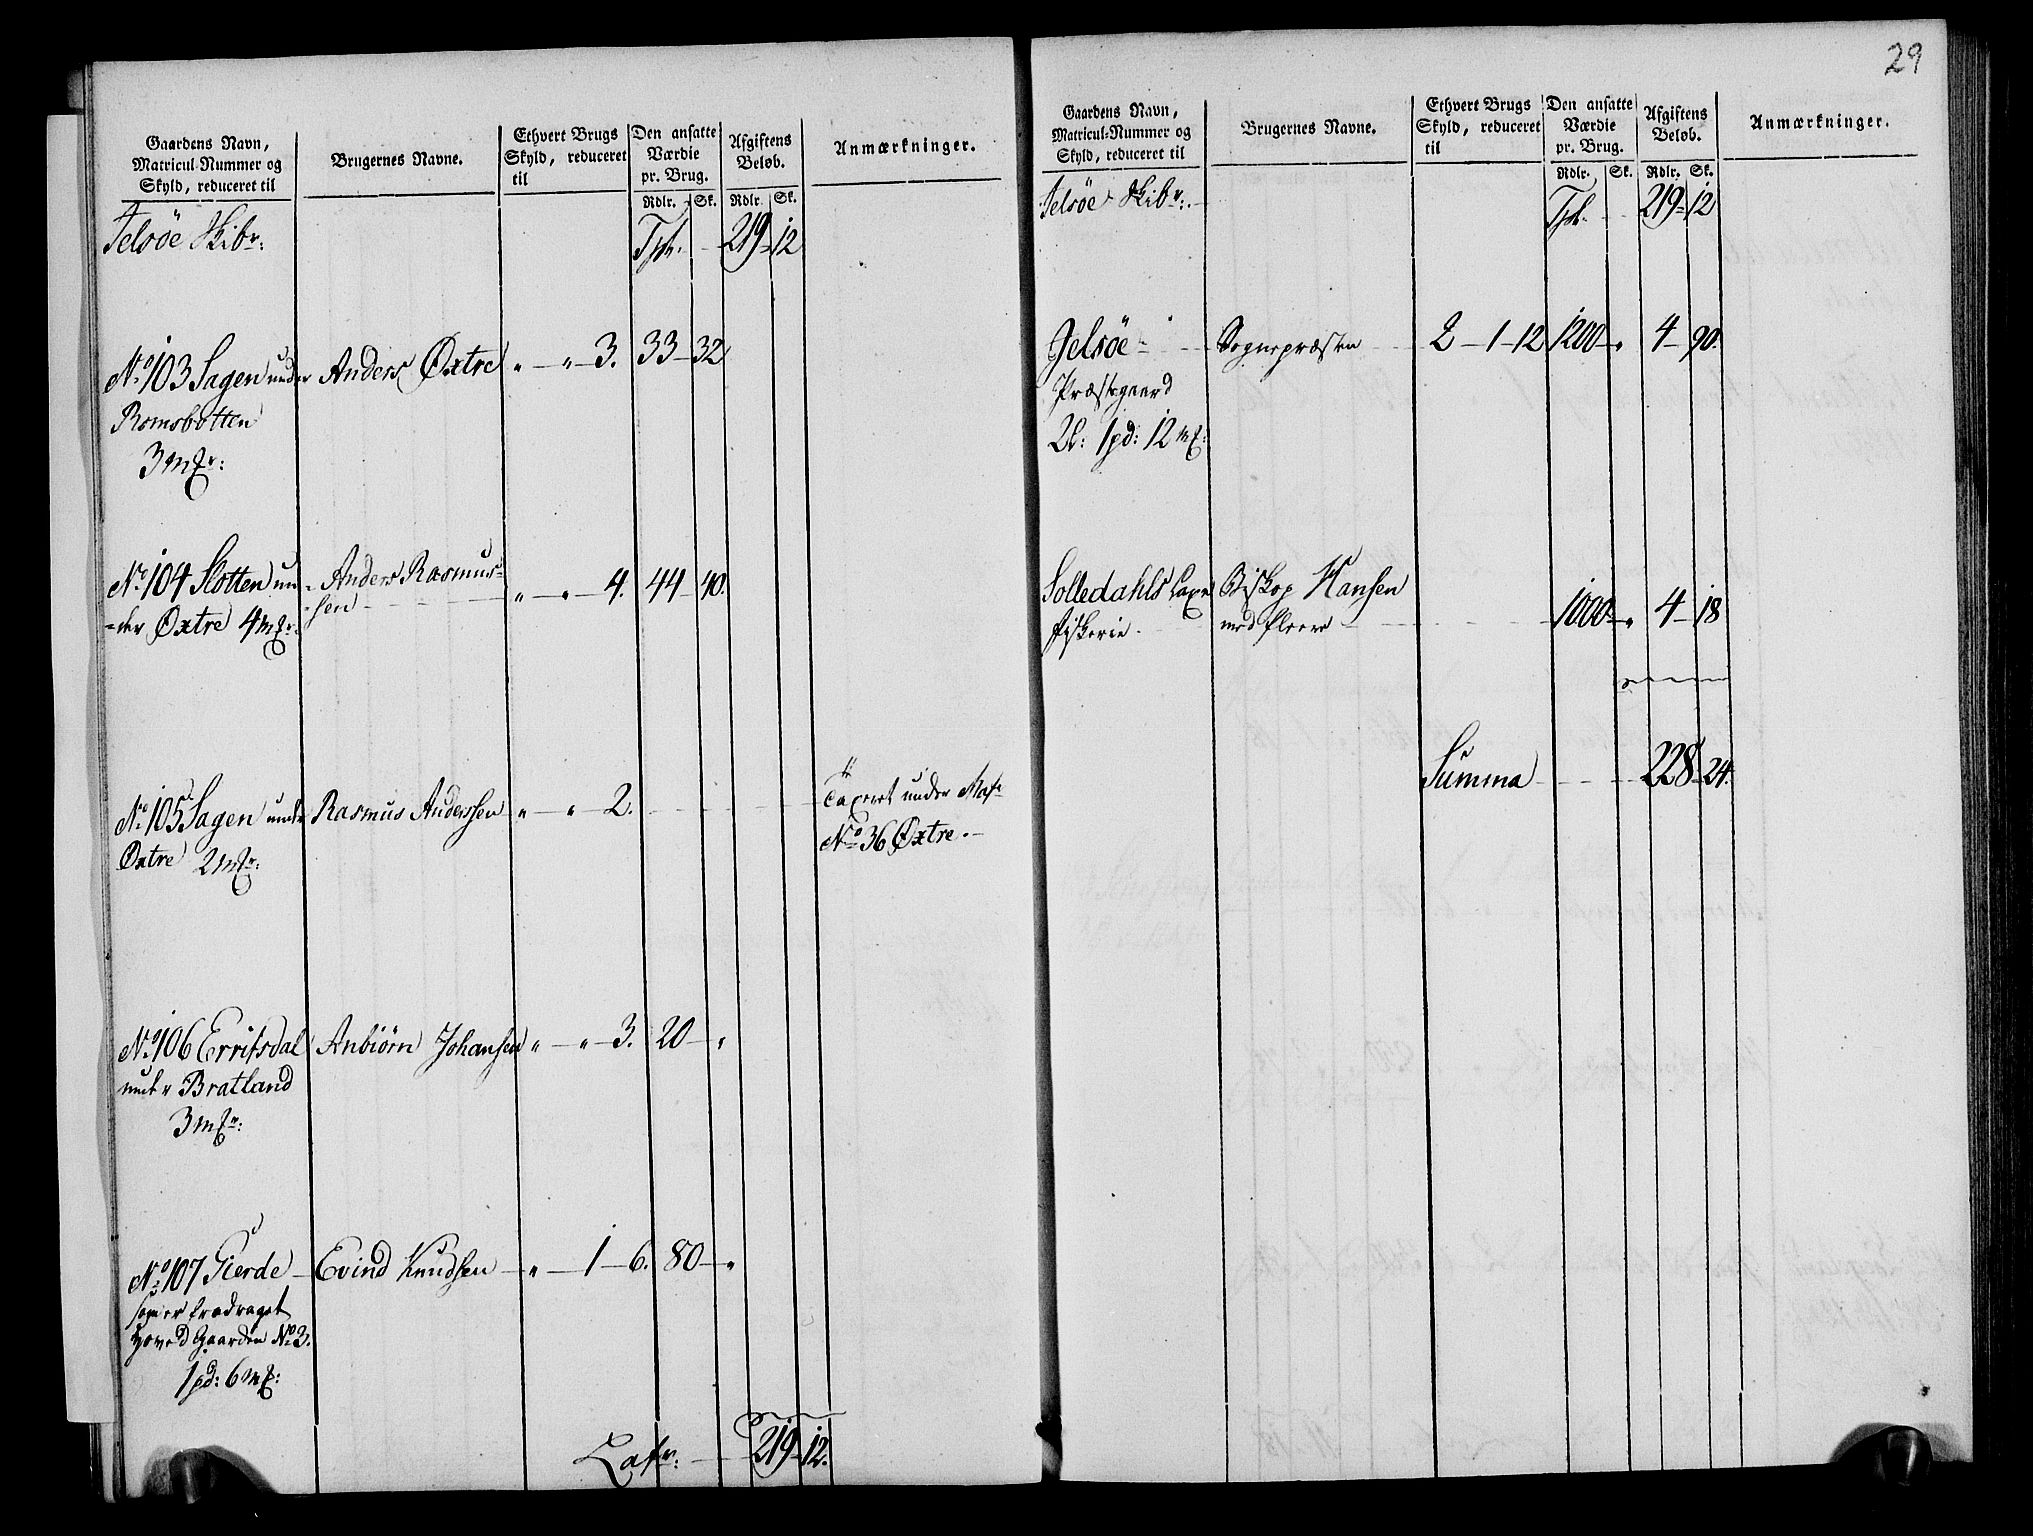 Gaardens Navn,
Matricul-Nummer og
Skyld, reduceret til
Brugernes Navne.
Ethvert Brugs
Skyld, reduceret
til
Den ansatte
Værdie
pr. Brug.
Rdlr. Sk.
Afgiftens
Beløb.
Rdlr. Sk.
Anmærkninger.
Jelsöe Skibr:
Tpt. 219 12
No 103 Sagen under Anders Øxtre " " 3. 33 32
Romsbotten
3 mkr:
No 104 Slotten un- Anders Rasmus- " " 4. 44 40.
der Øxtre 4 mkr: sen
No 105 Sagen under Rasmus Anderssen " " 2. Taxeret under Matr
Øxtre 2 mkr: No 36 Øxtre.
No 106 Erritsdal Anbiørn Johansen " " 3. 20 "
under Bratland
3 mkr:
No 107 Gierde Evind Knudsen " 1 6. 80 "
som er fradraget
Hoved Gaarden No 3.
1 pd: 6 mk:
Latr: 219 12.
29
Gaardens Navn,
Matricul-Nummer og
Skyld, reduceret til
Brugernes Navne.
Ethvert Brugs
Skyld, reduceret
til
Den ansatte
Værdie
pr. Brug.
Rdlr. Sk.
Afgiftens
Beløb.
Rdlr. Sk.
Anmærkninger.
Jelsöe Skibr:
Tpt. 219 12
Jelsöe Sognepræsten 2 1 12 1200 " 4 90.
Præstegaard
2 l: 1 pd: 12 mk:
Solledahls Laxe Biskop Hansen
fiskerie. med fleere 1000 " 4 18
Summa 228 24.